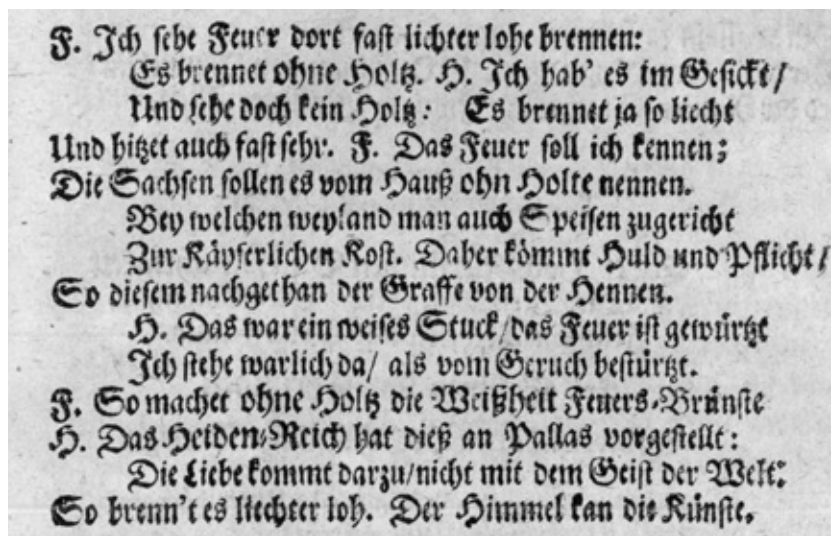 F. Ich sehe Feuer dort fast lichter lohe brennen:
Es brennet ohne Holtz. H. Ich hab' es im Gesicht/
Und sehe doch kein Holtz: Es brennet ja so liecht
Und hitzet auch fast sehr. F. Das Feuer soll ich kennen;
Die Sachsen sollen es vom Hauß ohn Holte nennen.
Bey welchen weyland man auch Speisen zugericht
Zur Käyserlichen Kost. Daher kömmt Huld und Pflicht/
So diesem nachgethan der Graffe von der Hennen.
H. Das war ein weises Stuck/das Feuer ist gewürtzt
Ich stehe warlich da/ als vom Geruch bestürtzt.
F. So machet ohne Holtz die Weißheit Feuers-Brünste
H. Das Heiden-Reich hat dieß an Pallas vorgestellt:
Die Liebe kommt darzu/nicht mit dem Geist der Welt:
So brenn't es liechter loh. Der Himmel kan die Künste.